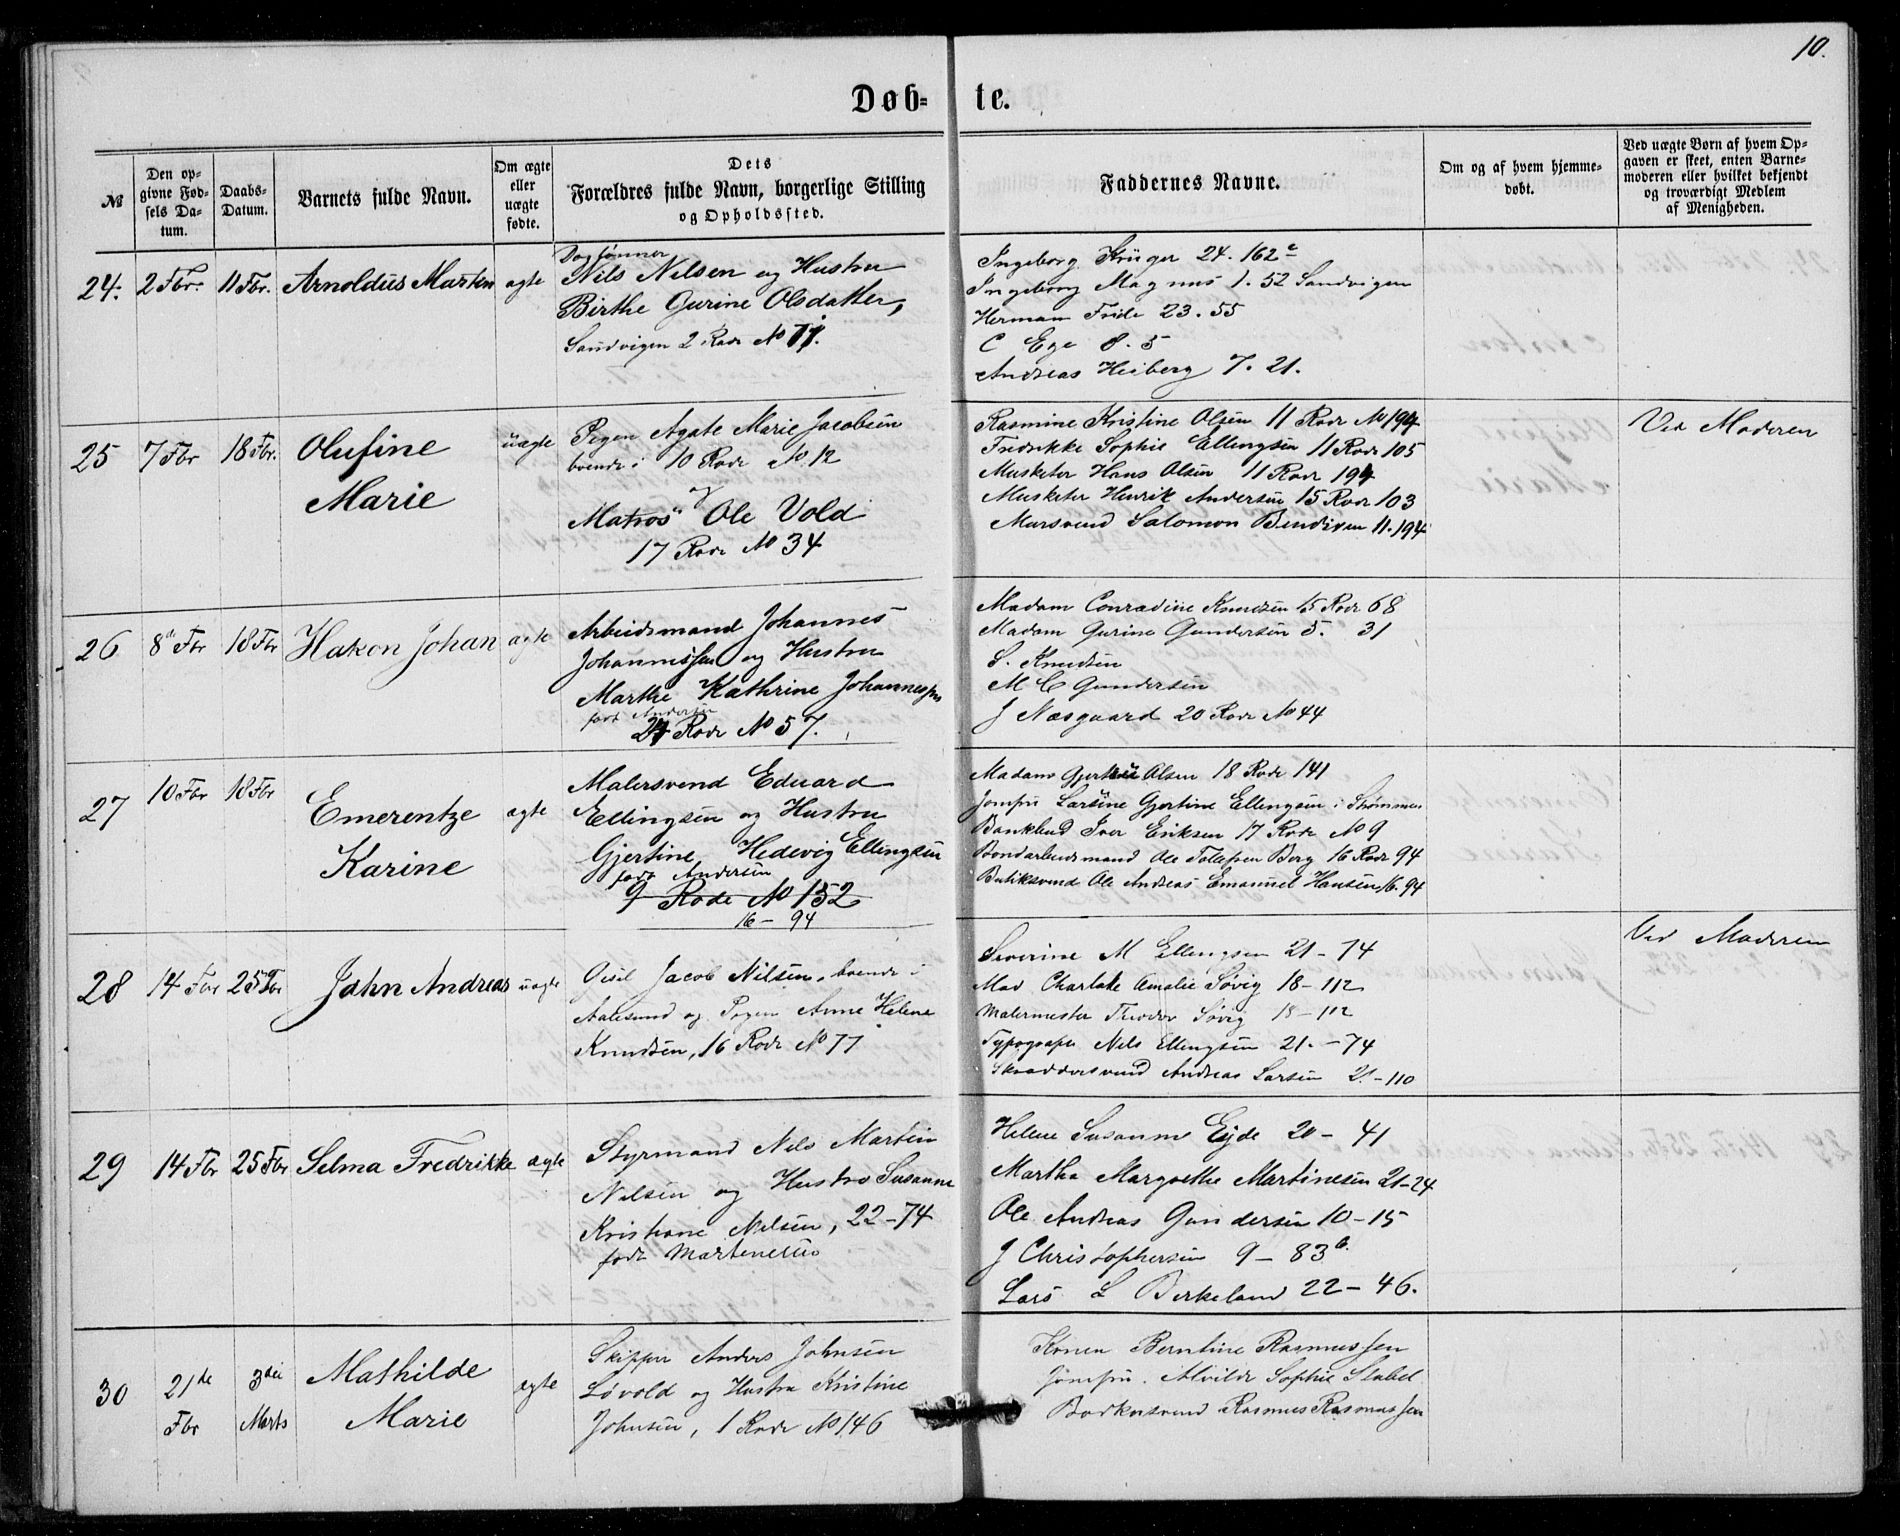 10.
Døb-te.
№
Den opgivne Fødsels Datum.
Daabs-Datum.
Barnets fulde Navn.
Om ægte eller uægte fødte.
Dets Forældres fulde Navn, borgerlige Stilling og Opholdssted.
Faddernes Navne.
Om og af hvem hjemmedøbt.
Ved uægte Børn af hvem Opgaven er skeet, enten Barnemoderen eller hvilket bekjendt og troværdigt Medlem af Menigheden.
24. 2 Fbr. 11 Fbr. Arnoldus Martin ægte
Nils Nilsen og Hustru
Birthe Gurine Olsdatter,
Sandvigen 2 Rode No 77.
Ingeborg Krüger 24. 162
Ingeborg Magnus 1. 52 Sandvigen
Herman Friele 23. 55
C Ege 8. 5
Andreas Heiberg 7. 21.
25 7 Fbr 18 Fbr. Olufine
Marie
uægte
Pigen Agate Marie Jacobsen
boende i 10 Rode No 12
Matros Ole Vold
17 Rode No 34
Rasmine Kristine Olsen 11 Rode No 194
Fredrikke Sophie Ellengsen 11 Rode 105
Musketer Hans Olsen 11 Rode 194
Musketer Henrik Andersen 15 Rode 103
Mursvend Salomon 11. 194
Ved Moderen
26 8de Fbr 18 Fbr Hakon Johan ægte
Arbeidsmand Johannes
Johannessen og Hustru
Marthe Kathrine Johannessen
født Andersen
24 Rode No 57.
Madam Conradine Knudsen 15 Rode 68
Madam Gurine Gundersen 5. 31
S. Knudsen
M C Gundersen
J Næsgaard 20 Rode No 44
27 10 Fbr 18 Fbr Emerentze
Karine
ægte
Malersvend Eduard
Ellingsen og Hustru
Gjertine Hedevig Ellingsen
født Andersen
9 Rode No 152
16 - 94
Madam Olsen 18 Rode 141
Jomfru Larsine Gjertine Ellengsen i Strømmen
Bankbud Iver Eriksen 17 Rode No 9
Bondarbeidsmand Ole Tollefsen Berg 16 Rode 94
Butiksvend Ole Andreas Emanuel Hansen 16. 94
28 14 Fbr 25 Fbr John Andreas uægte
Jacob Nilsen, boende i
Aalesund og Pigen Anne Helene
Knudsen, 16 Rode No 77
Severine M Ellengsen 21 - 74
Mad Charlotte Amalie Søvig 18 - 112
Malermester Theodor Søvig 18 - 112
Typograf Nils Ellengsen 21. - 74
Skræddersvend Andreas Larsen 21 - 110
Ved Moderen
29 14 Fbr 25 Fbr Selma Fredrikke ægte
Styrmand Nils Martin
Nilsen og Hustru Susanne
Kristiane Nilsen, 22 - 74
født Martinesen
Helene Susanne Eyde 20 - 41
Martha Margrethe Martinesen 21 - 24
Ole Andreas Gundersen 10 - 15
J Christophersen 9 - 83 b.
Lars L Birkeland 22 - 46.
30 21de 3die Mathilde
Fbr Marts Marie
ægte
Skipper Anders Johnsen
Løvold og Hustru Kristine
Johnsen, 1 Rode No 146
Konen Berntine Rasmussen
Jomfru Alvilde Sophie Stabel
Bødkersvend Rasmus Rasmussen